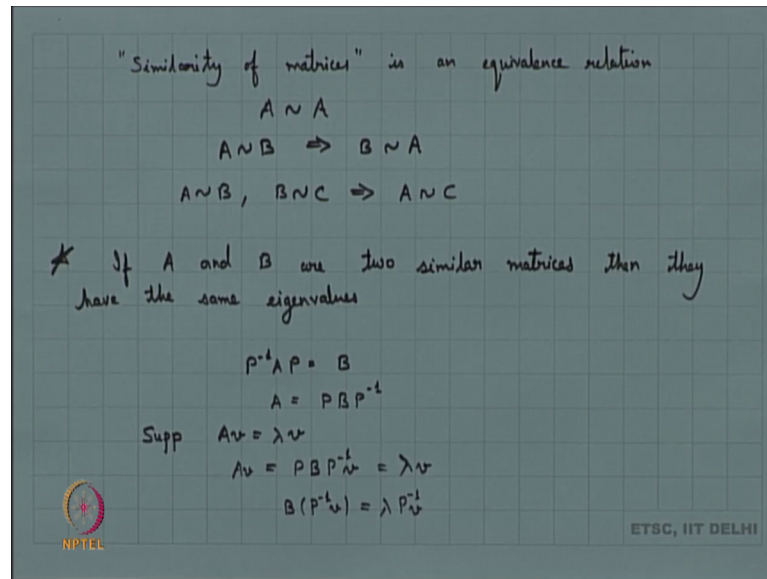 "Similarity of matrices" is an equivalence relation
A ~ A
A ~ B ⇒ B ~ A
A ~ B, B ~ C ⇒ A ~ C
* If A and B are two similar matrices then they
have the same eigenvalues
P⁻¹AP = B
A = PBP⁻¹
Supp Av = λv
Av = PBP⁻¹v = λv
B(P⁻¹v) = λP⁻¹v
NPTEL
ETSC, IIT DELHI